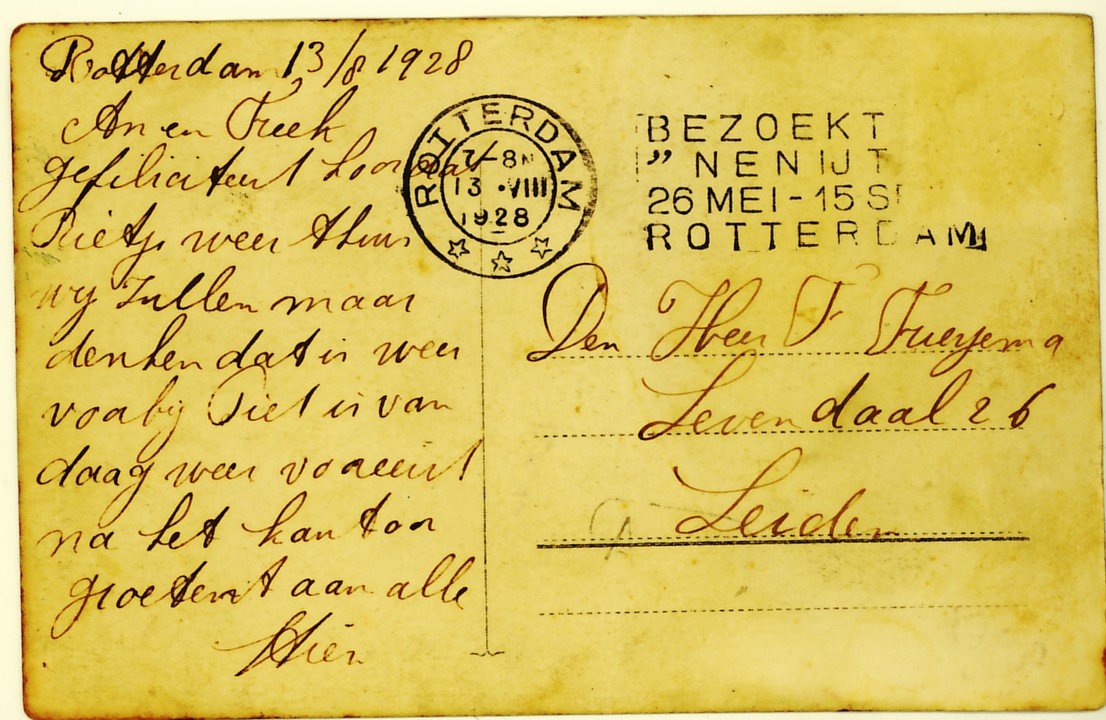 Rotterdam 13/8 1928
An en Freek
gefiliciteert hoor dat
Pietje weer thuis
wij zullen maar
denken dat is weer
voorbij Piet is van
daag weer vooreerst
na het kantoor
groetent aan alle
Stien
ROTTERDAM
7-8N
13 •VIII
1928
BEZOEKT
” NENIJT
26 MEI - 15 S
ROTTERDAM
Den Heer F
Levendaal 26
Leiden